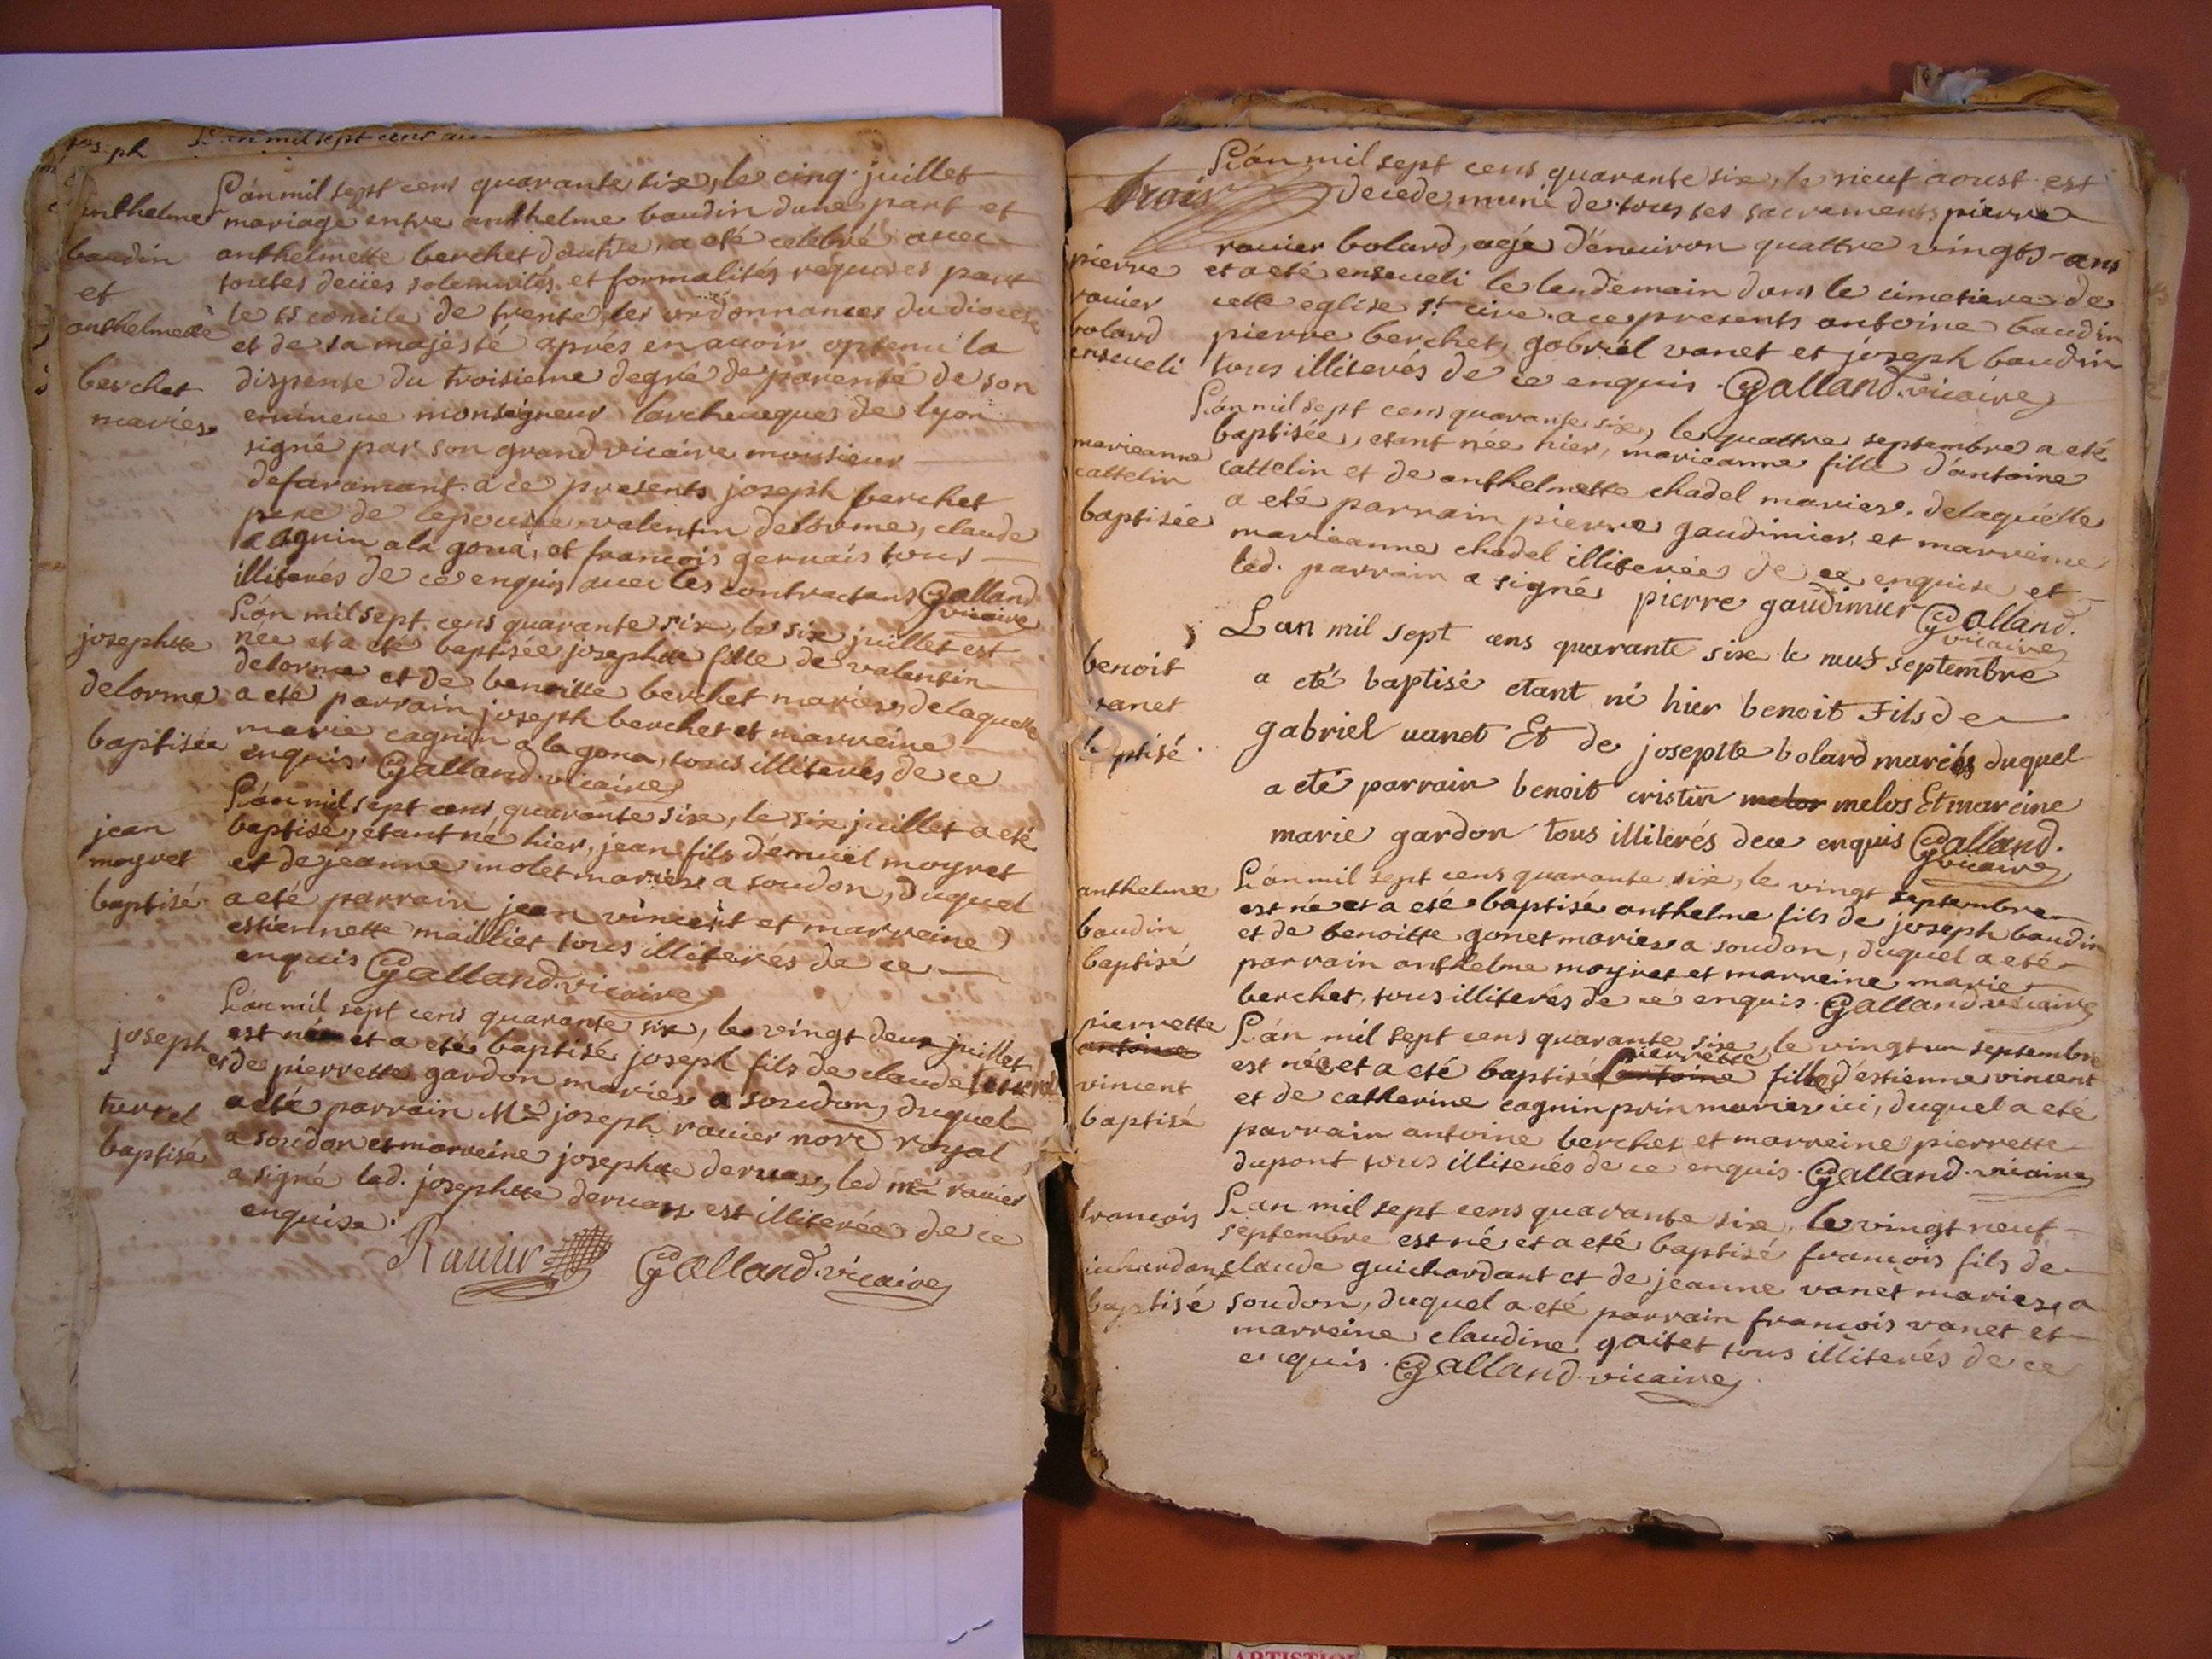 L'an mil sept cens
anthelme
baudin
et
anthelmette
berchet
mariés
L'an mil sept cens quarante six, le cinq juillet
mariage entre anthelme baudin dune part et
anthelmette berchet d'autre, a eté celebré avec
toutes deües solemnités, et formalités requises part
le st concile de trente, les ordonnances du diocese
et de sa majesté apres en avoir optenu la
dispense du troisieme degré de parenté de son
eminence monseigneur l'archeveque de lyon
signé par son grand vicaire monsieur
defaramant. a ce presents joseph berchet
pere de lepousée valentin delorme, claude
cagnin ala gona, et françois gervais tous
illiterés de ce enquis avec les contractans Galland
vicaire
josephte
delorme
baptisée
L'an mil sept cens quarante six, le six juillet est
née et a eté baptisée josephte fille de valentin
delorme et de benoitte berchet mariés, delaquelle
a eté parrain joseph berchet et marreine
marie cagnin a la gona, tous illiterés de ce
enquis. Galland vicaire
jean
moyret
baptisé
L'an mil sept cens quarante six, le six juillet a eté
baptisé, etant né hier, jean fils d'emuël moyret
et de jeanne molet mariés a soudon, duquel
a eté parrain jean vincent et marreine
estiennette mailliet tous illiterés de ce
enquis Galland vicaire
joseph
turrel
baptisé
L'an mil sept cens quarante six, le vingt deux juillet
est né et a eté baptisé joseph fils de claude turrel
et de pierrette gardon mariés a soudon, duquel
a eté parrain Me joseph ravier nore royal
a soudon et marreine josephte dervas, led me ravier
a signé lad. josephte dervas est illiterée de ce
enquise.
Ravier Galland vicaire
trois
pierre
ravier
bolard
enseveli
L'an mil sept cens quarante six, le neuf aoust est
decede, muni de tous ses sacrements pierre
ravier bolard, agé d'environ quattre vingts ans
et a eté enseveli le lendemain dans le cimetiere de
cette eglise st cire. a ce presents antoine baudin
pierre berchet, gabriel vanet et joseph baudin
tous illiterés de ce enquis. Galland vicaire
marieanne
cattelin
baptisée
L'an mil sept cens quarante six, le quattre septembre a eté
baptisée, etant née hier, marieanne fille d'antoine
cattelin et de anthelmette chadel mariés, delaquelle
a eté parrain pierre gaudimier et marreine
marieanne chadel illiterée de ce enquise et
led. parrain a signé pierre gaudimier Galland.
vicaire
benoit
vanet
baptisé
Lan mil sept cens quarante six le neuf septembre
a eté baptisé etant né hier benoit Fils de
gabriel uanet Et de josepte bolard mariés duquel
a eté parrain benoit cristin melos Et mareine
marie gardon tous illiterés dece enquis Galland.
vicaire
anthelme
baudin
baptisé
L'an mil sept cens quarante six, le vingt septembre
est né et a eté baptisé anthelme fils de joseph baudin
et de benoitte gonet mariés a soudon, duquel a eté
parrain anthelme moyret et marreine marie
berchet, tous illiterés de ce enquis. Galland vicaire
pierrette
antoine
vincent
baptisé
L'an mil sept cens quarante six, le vingt un septembre
pierrette
est née et a eté baptisée antoine fille d'estienne vincent
et de catherine cagnin prin mariés ici, duquel a eté
parrain antoine berchet et marreine pierrette
dupont tous illiterés de ce enquis. Galland vicaire
françois
guichardant
baptisé
L'an mil sept cens quarante six, le vingt neuf
septembre est né et a eté baptisé françois fils de
claude guichardant et de jeanne vanet mariés a
soudon, duquel a eté parrain françois vanet et
marreine claudine goitet tous illiterés de ce
enquis. Galland vicaire